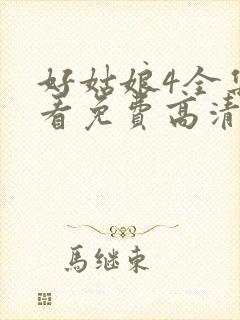 好姑娘4全
看免费高清
馬继東